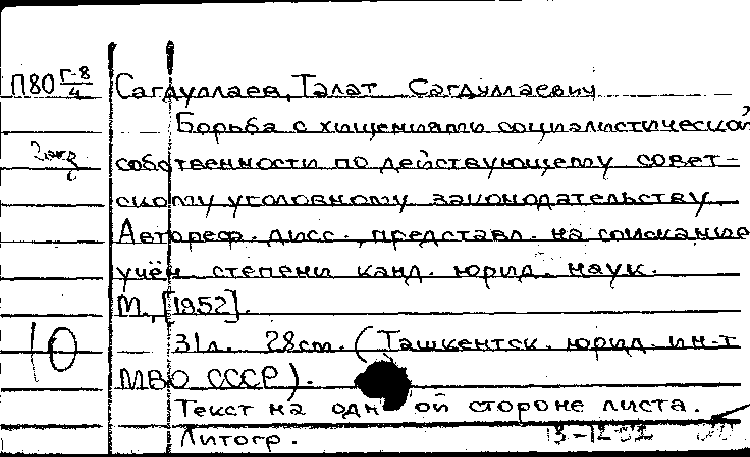 П80 Г-8/4 Сагдуллаев, Талат Сагдуллаевич
Борьба с хищениями социалистической
2 экз собственности по действующему совет-
скому уголовному законодательству.
Автореф. дисс., представл. на соискание
учён. степени канд. юрид. наук.
М., [1952].
10 31л. 28см. (Ташкентск. юрид. ин-т
МВО СССР).
Текст на одной стороне листа.
Литогр. 13-12-52